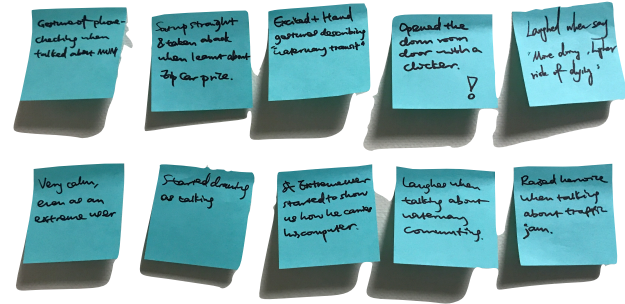 Gesture of phone-
checking when
talked about Muni
Sat up straight
& taken aback
when learnt about
Zip Car price.
Excited + Hand
gestures describing
"waterway transit"
Opened the
dorm room
door with a
clicker.
!
Laughed when say
"More drug, higher
side of dying"
Very calm,
even as an
extreme user
Started drawing
as talking
Extreme user
started to show
us how he carries
his computer.
Laughes when
talking about
waterway
commuting.
Raised her voice
when talking
about traffic
jam.